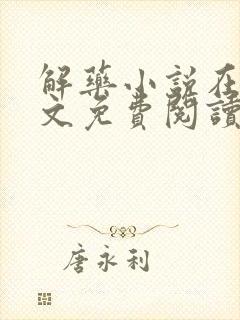 解藥小説在
文免費閱讀
唐永利